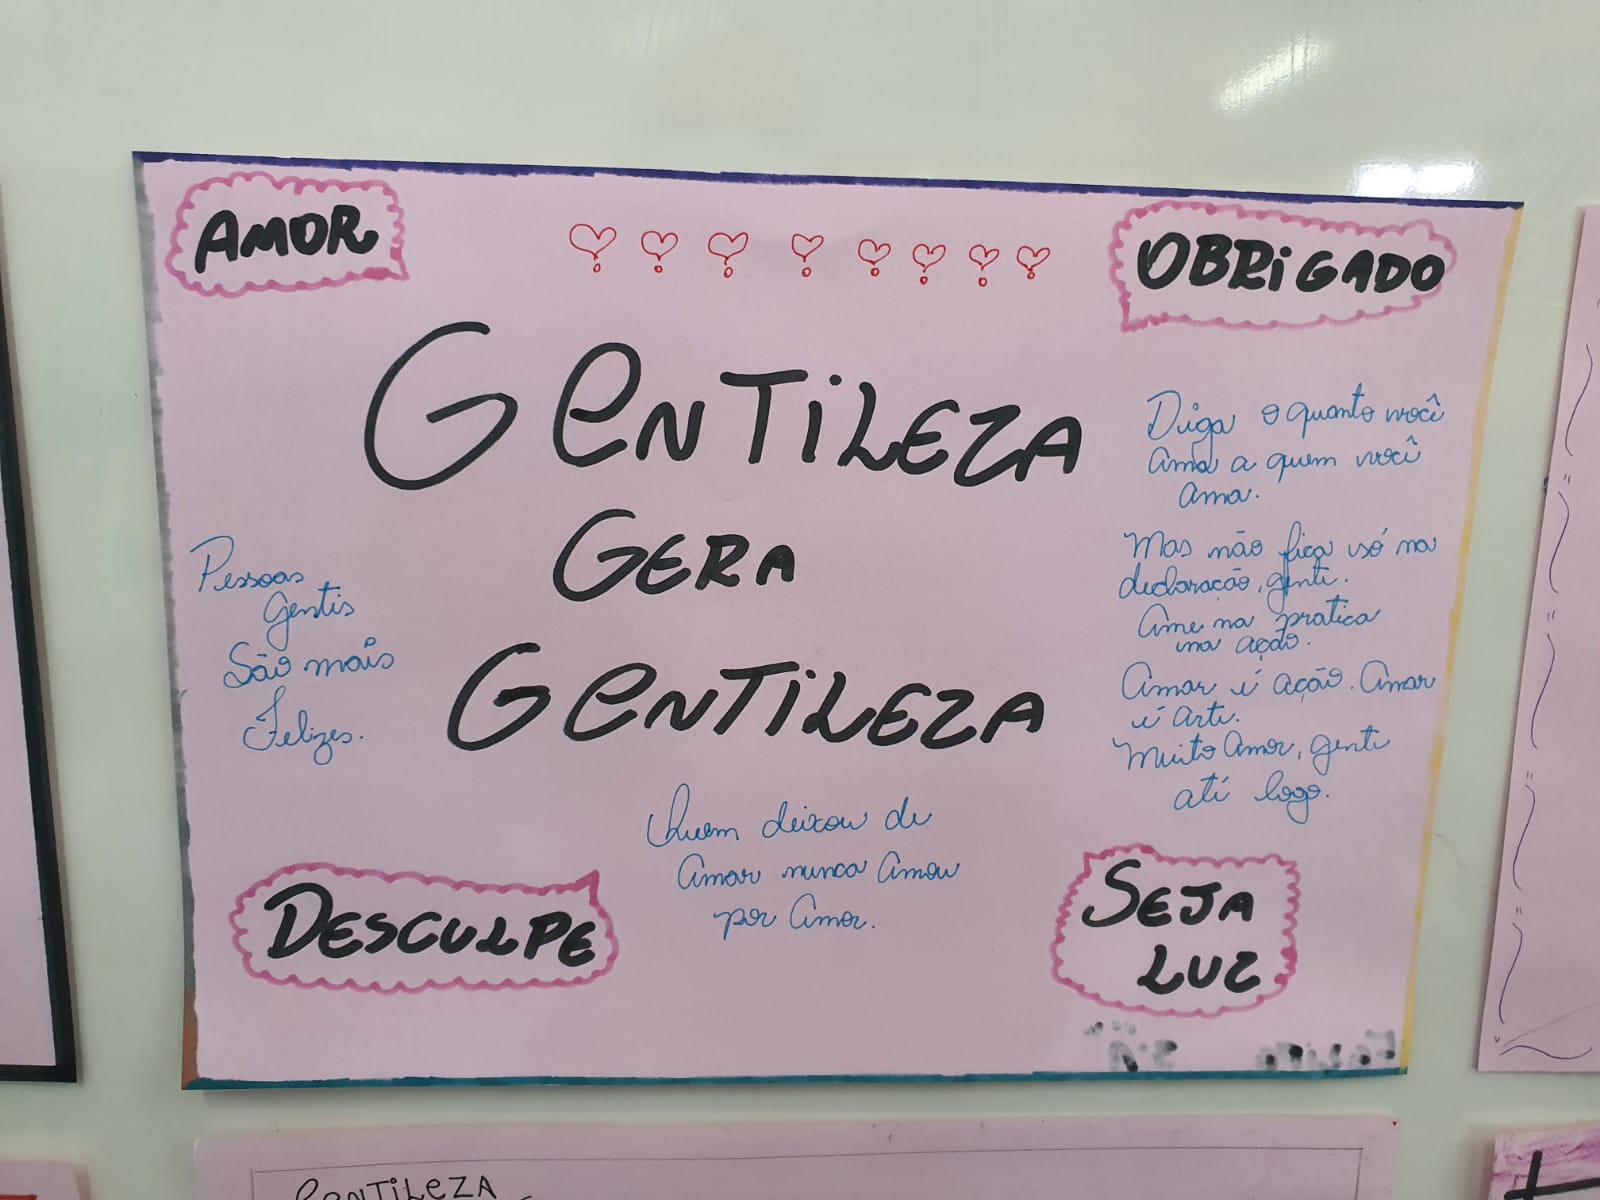 AMOR
OBRIGADO
GENTILEZA
GERA
GENTILEZA
Pessoas
gentis
São mais
Felizes.
Diga o quanto você
ama a quem você
ama.
Mas não fica só na
declaração, gente.
Ame na pratica
na ação.
Amar é ação. Amar
é arte.
Muito Amor, gente
até logo.
Quem deixou de
Amar nunca Amou
por Amor.
DESCULPE
SEJA
LUZ
GENTILEZA